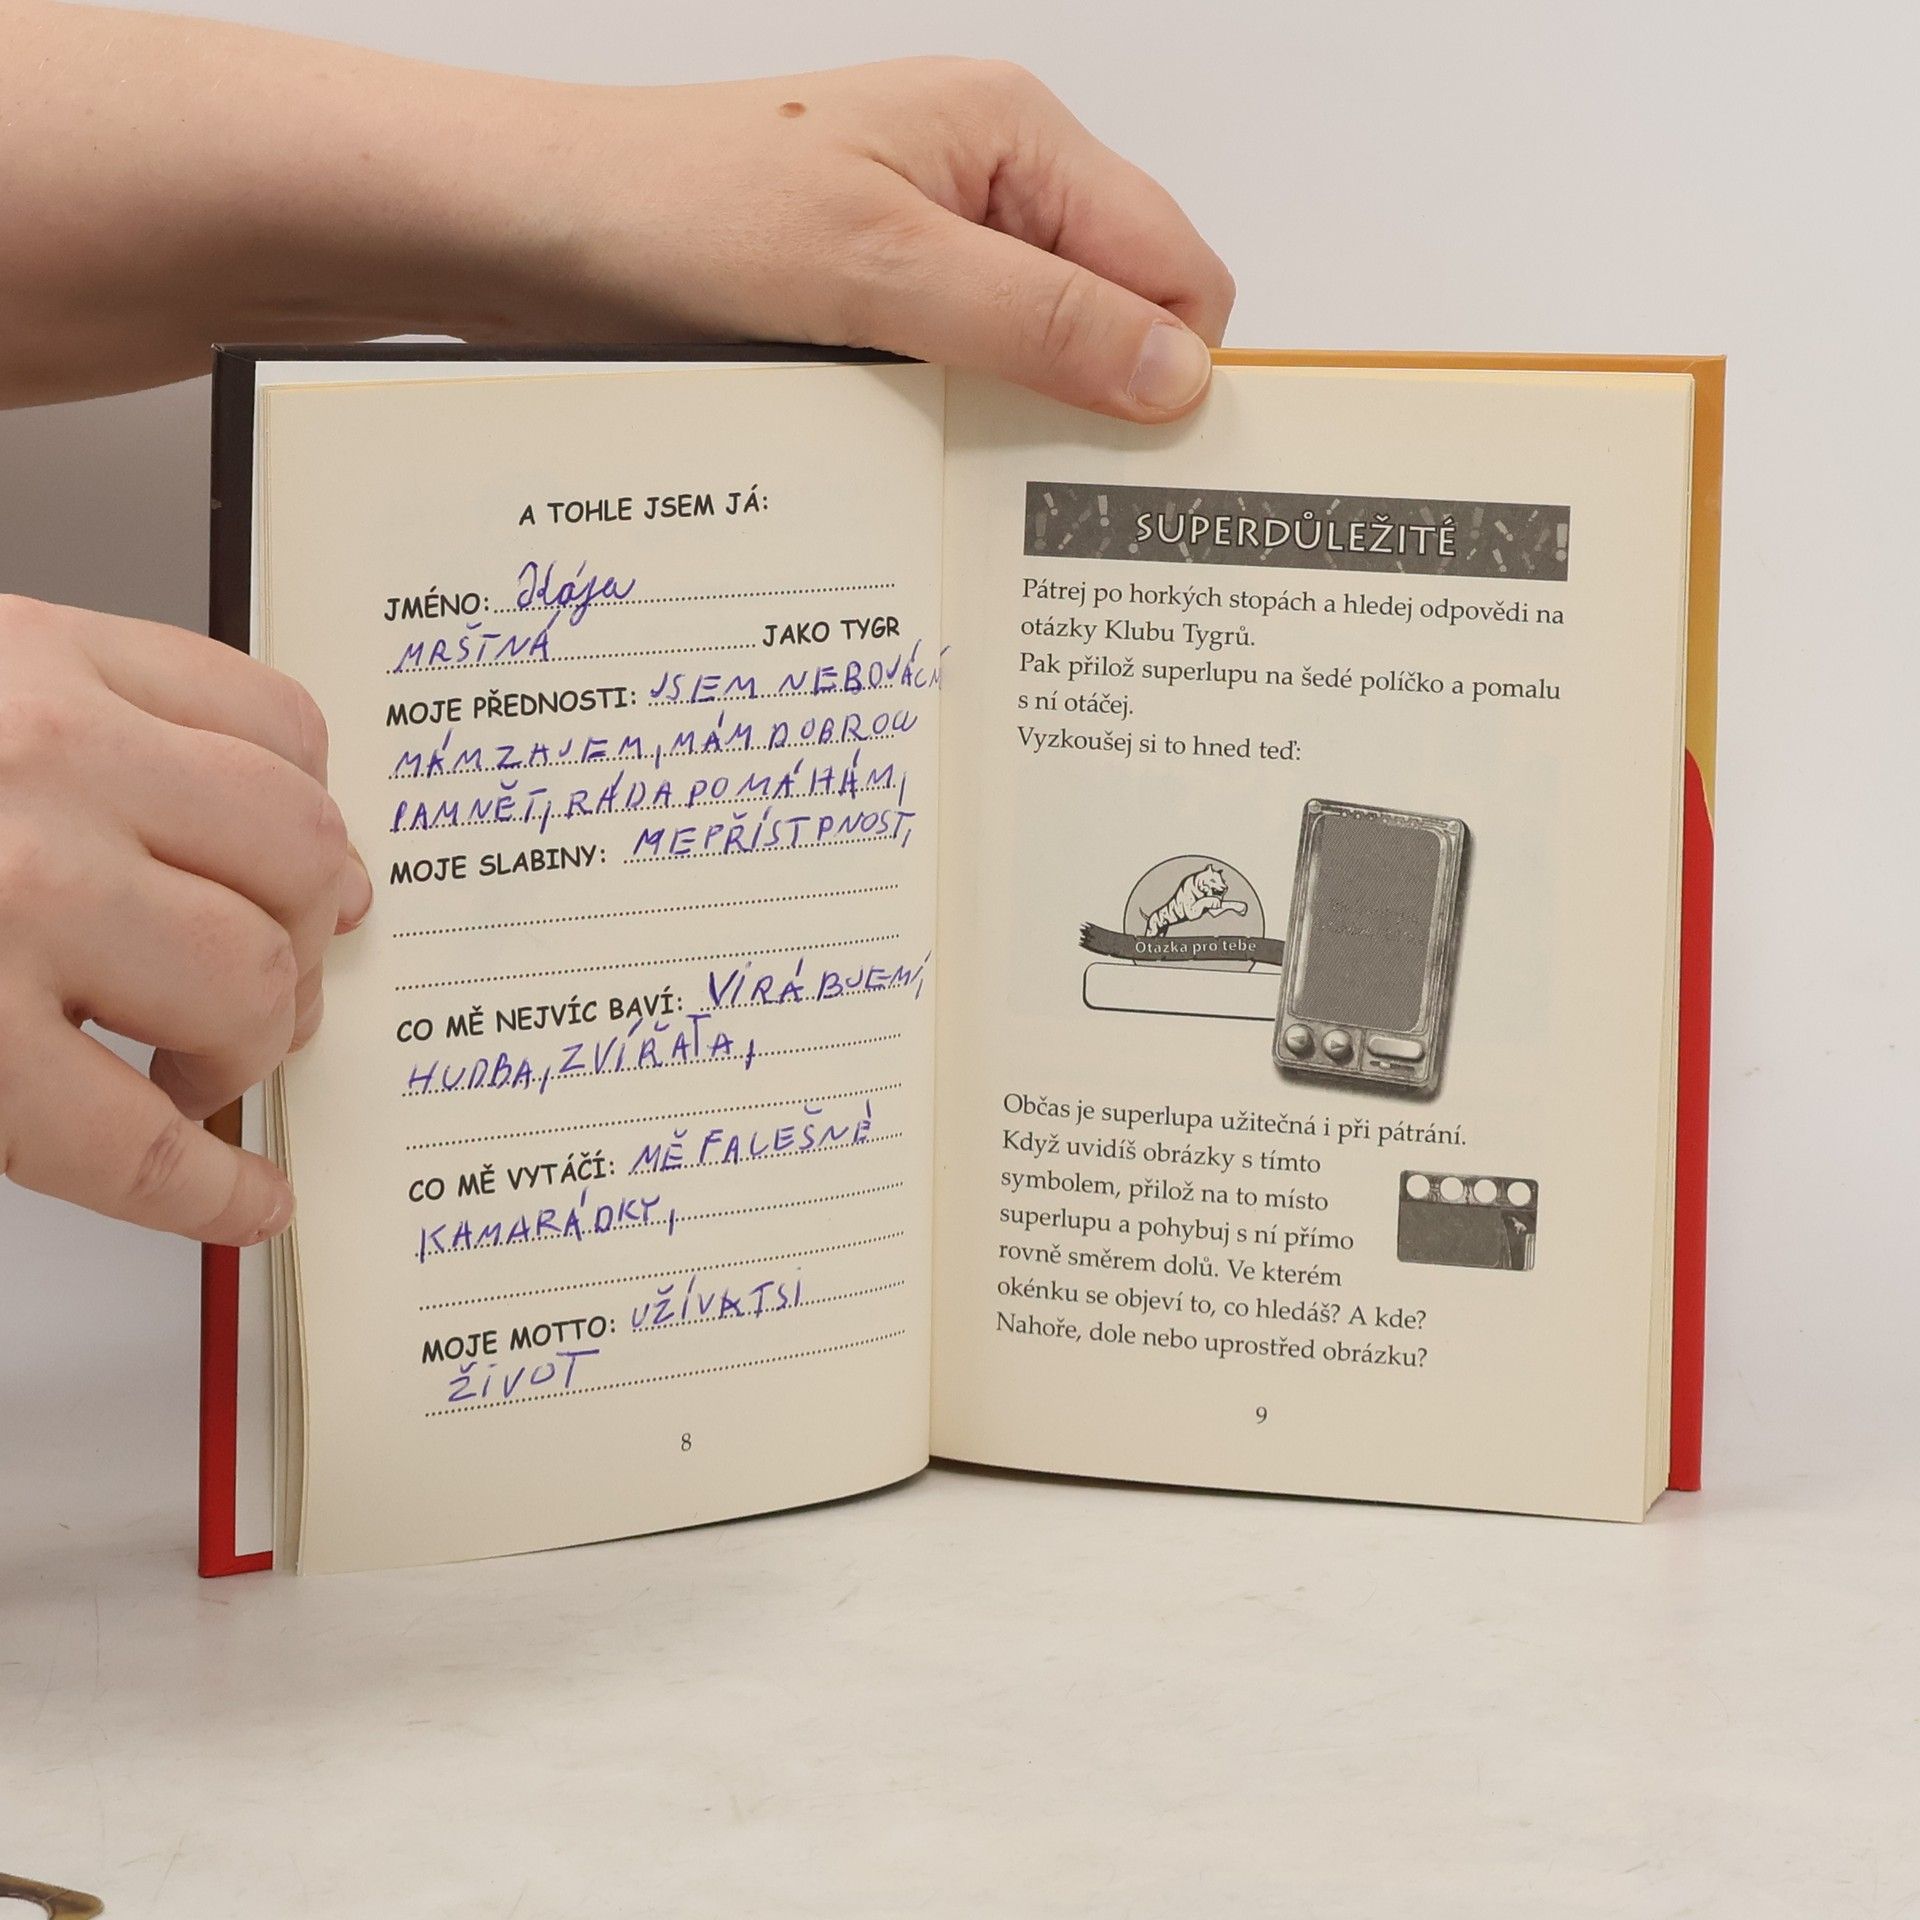 A TOHLE JSEM JÁ:
JMÉNO: Kája
MRŠTNÁ JAKO TYGR
MOJE PŘEDNOSTI: JSEM NEBOJÁCN
MÁM ZAJEM, MÁM DOBROU
PAMNĚT, RÁDA POMÁHÁM,
MOJE SLABINY: NEPŘÍSTPNOST,
CO MĚ NEJVÍC BAVÍ: VIRÁBJENÍ,
HUDBA, ZVÍŘATA,
CO MĚ VYTÁČÍ: MĚ FALEŠNÉ
KAMARÁDKY,
MOJE MOTTO: UŽÍVATSI
ŽIVOT
8
SUPERDŮLEŽITÉ
Pátrej po horkých stopách a hledej odpovědi na
otázky Klubu Tygrů.
Pak přilož superlupu na šedé políčko a pomalu
s ní otáčej.
Vyzkoušej si to hned teď:
Otázka pro tebe
Občas je superlupa užitečná i při pátrání.
Když uvidíš obrázky s tímto
symbolem, přilož na to místo
superlupu a pohybuj s ní přímo
rovně směrem dolů. Ve kterém
okénku se objeví to, co hledáš? A kde?
Nahoře, dole nebo uprostřed obrázku?
9